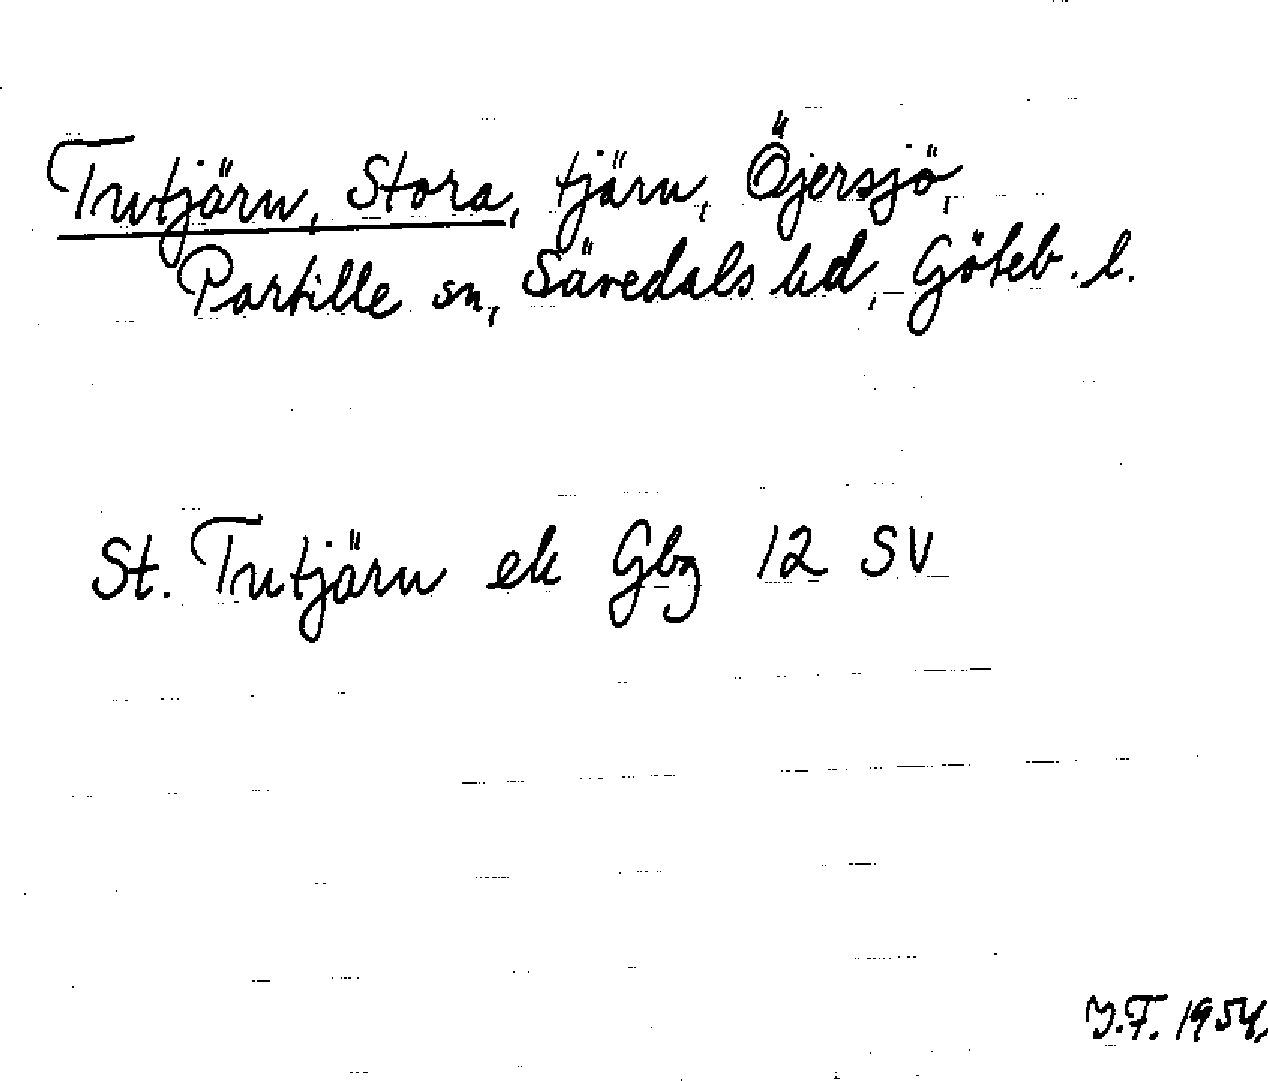 Trutjärn, Stora, tjärn, Öjersjö,
Partille sn, Sävedals hd, Göteb. l.
St. Trutjärn ek Gbg 12 SV
Y.F. 1954.